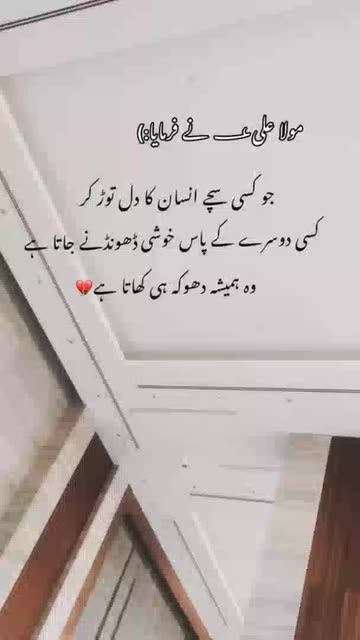 مولا علیؑ نے فرمایا:)
جو کسی سچے انسان کا دل توڑ کر
کسی دوسرے کے پاس خوشی ڈھونڈنے جاتا ہے
وہ ہمیشہ دھوکہ ہی کھاتا ہے💔